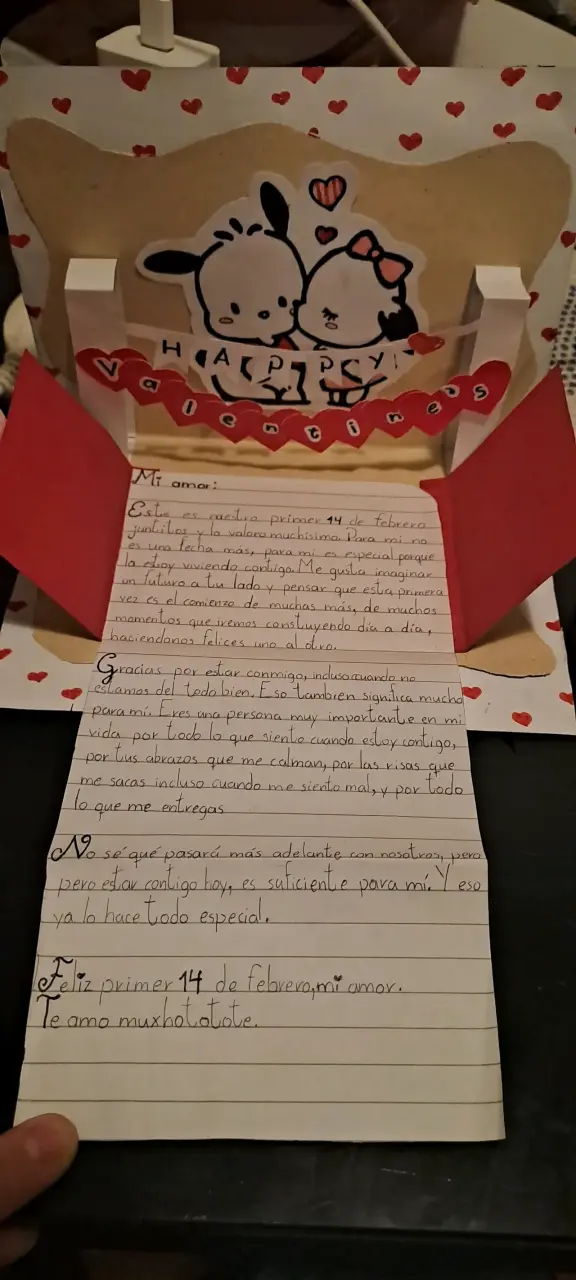 HAPPY!
Valentines
Mi amor:
Este es nuestro primer 14 de febrero
juntitos y lo valoro muchísimo. Para mi no
es una fecha más, para mi es especial porque
la estoy viviendo contigo. Me gusta imaginar
un futuro a tu lado y pensar que esta primera
vez es el comienzo de muchas más, de muchos
momentos que iremos construyendo día a día,
haciendonos felices uno al otro.
Gracias por estar conmigo, incluso cuando no
estamos del todo bien. Eso también significa mucho
para mí. Eres una persona muy importante en mi
vida por todo lo que siento cuando estoy contigo,
por tus abrazos que me calman, por las risas que
me sacas incluso cuando me siento mal, y por todo
lo que me entregas
No sé qué pasará más adelante con nosotros, pero
pero estar contigo hoy, es suficiente para mí. Y eso
ya lo hace todo especial.
Feliz primer 14 de febrero, mi amor.
Te amo muxhototote.